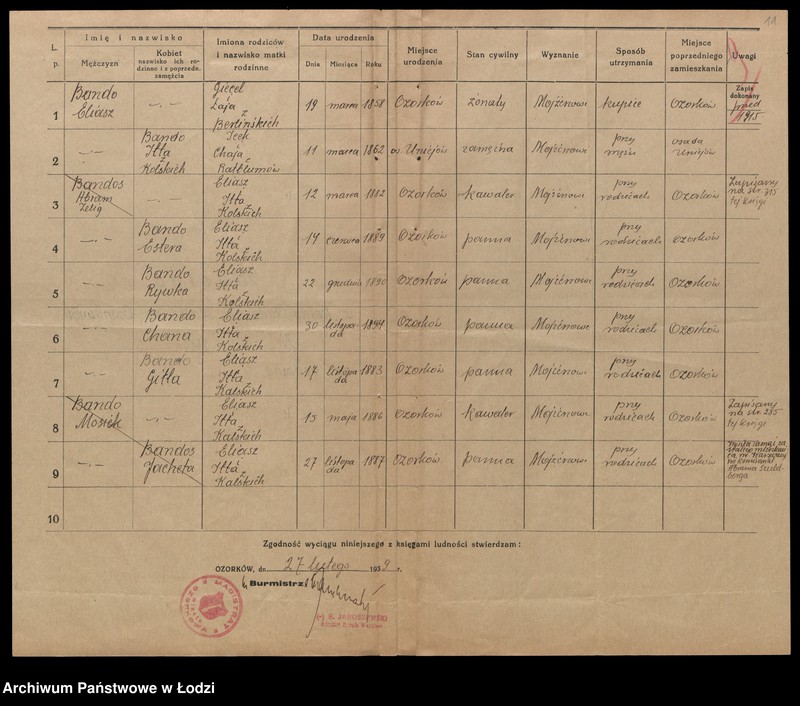 11
L. p.
Imię i nazwisko
Mężczyzn
Kobiet
nazwisko ich ro-
dzinne i z poprzedn.
zamęźcia
Imiona rodziców
i nazwisko matki
rodzinne
Data urodzenia
Dnia Miesiąca Roku
Miejsce
urodzenia
Stan cywilny
Wyznanie
Sposób
utrzymania
Miejsce
poprzedniego
zamieszkania
Uwagi
1
Bando
Eliasz
Łaja
z
Berlińskich
19 marca 1858 Ozorków żonaty Mojżeszowe kupiec Ozorków
Zapis
dokonany
przed
1915
2
Bando
Itta
z
Kolskich
Icek
Chaja
z
11 marca 1862 Uniejów zamężna Mojżeszowe
przy
mężu
osada
Uniejów
3
Bandos
Abram
Zelig
Eliasz
Itta
z
Kolskich
12 marca 1882 Ozorków kawaler Mojżeszowe
przy
rodzicach
Ozorków
Zapisany
na str.
tej księgi
4
Bando
Estera
Eliasz
Itta
z
Kolskich
14 czerwca 1889 Ozorków panna Mojżeszowe
przy
rodzicach
Ozorków
5
Bando
Rywka
Eliasz
Itta
z
Kolskich
22 grudnia 1890 Ozorków panna Mojżeszowe
przy
rodzicach
Ozorków
6
Bando
Chana
Eliasz
Itta
z
Kolskich
30 listopa
da
1894 Ozorków panna Mojżeszowe
przy
rodzicach
Ozorków
7
Bando
Gitla
Eliasz
Itta
z
Kalskich
17 listopa
da
1883 Ozorków panna Mojżeszowe
przy
rodzicach
Ozorków
8
Bando
Mosiek
Eliasz
Itta
z
Kalskich
15 maja 1886 Ozorków kawaler Mojżeszowe
przy
rodzicach
Ozorków
Zapisany
na str. 285
tej księgi
9
Bandos
Jacheta
Eliasz
Itta
z
Kalskich
27 listopa
da
1887 Ozorków panna Mojżeszowe
przy
rodzicach
Ozorków
Abrama
berga
10
Zgodność wyciągu niniejszego z księgami ludności stwierdzam:
OZORKÓW, dn. 27 lutego 1939 r.
Burmistrz:
(-) S. JAROSZYŃSKI
MAGISTRAT
Archiwum Państwowe w Łodzi